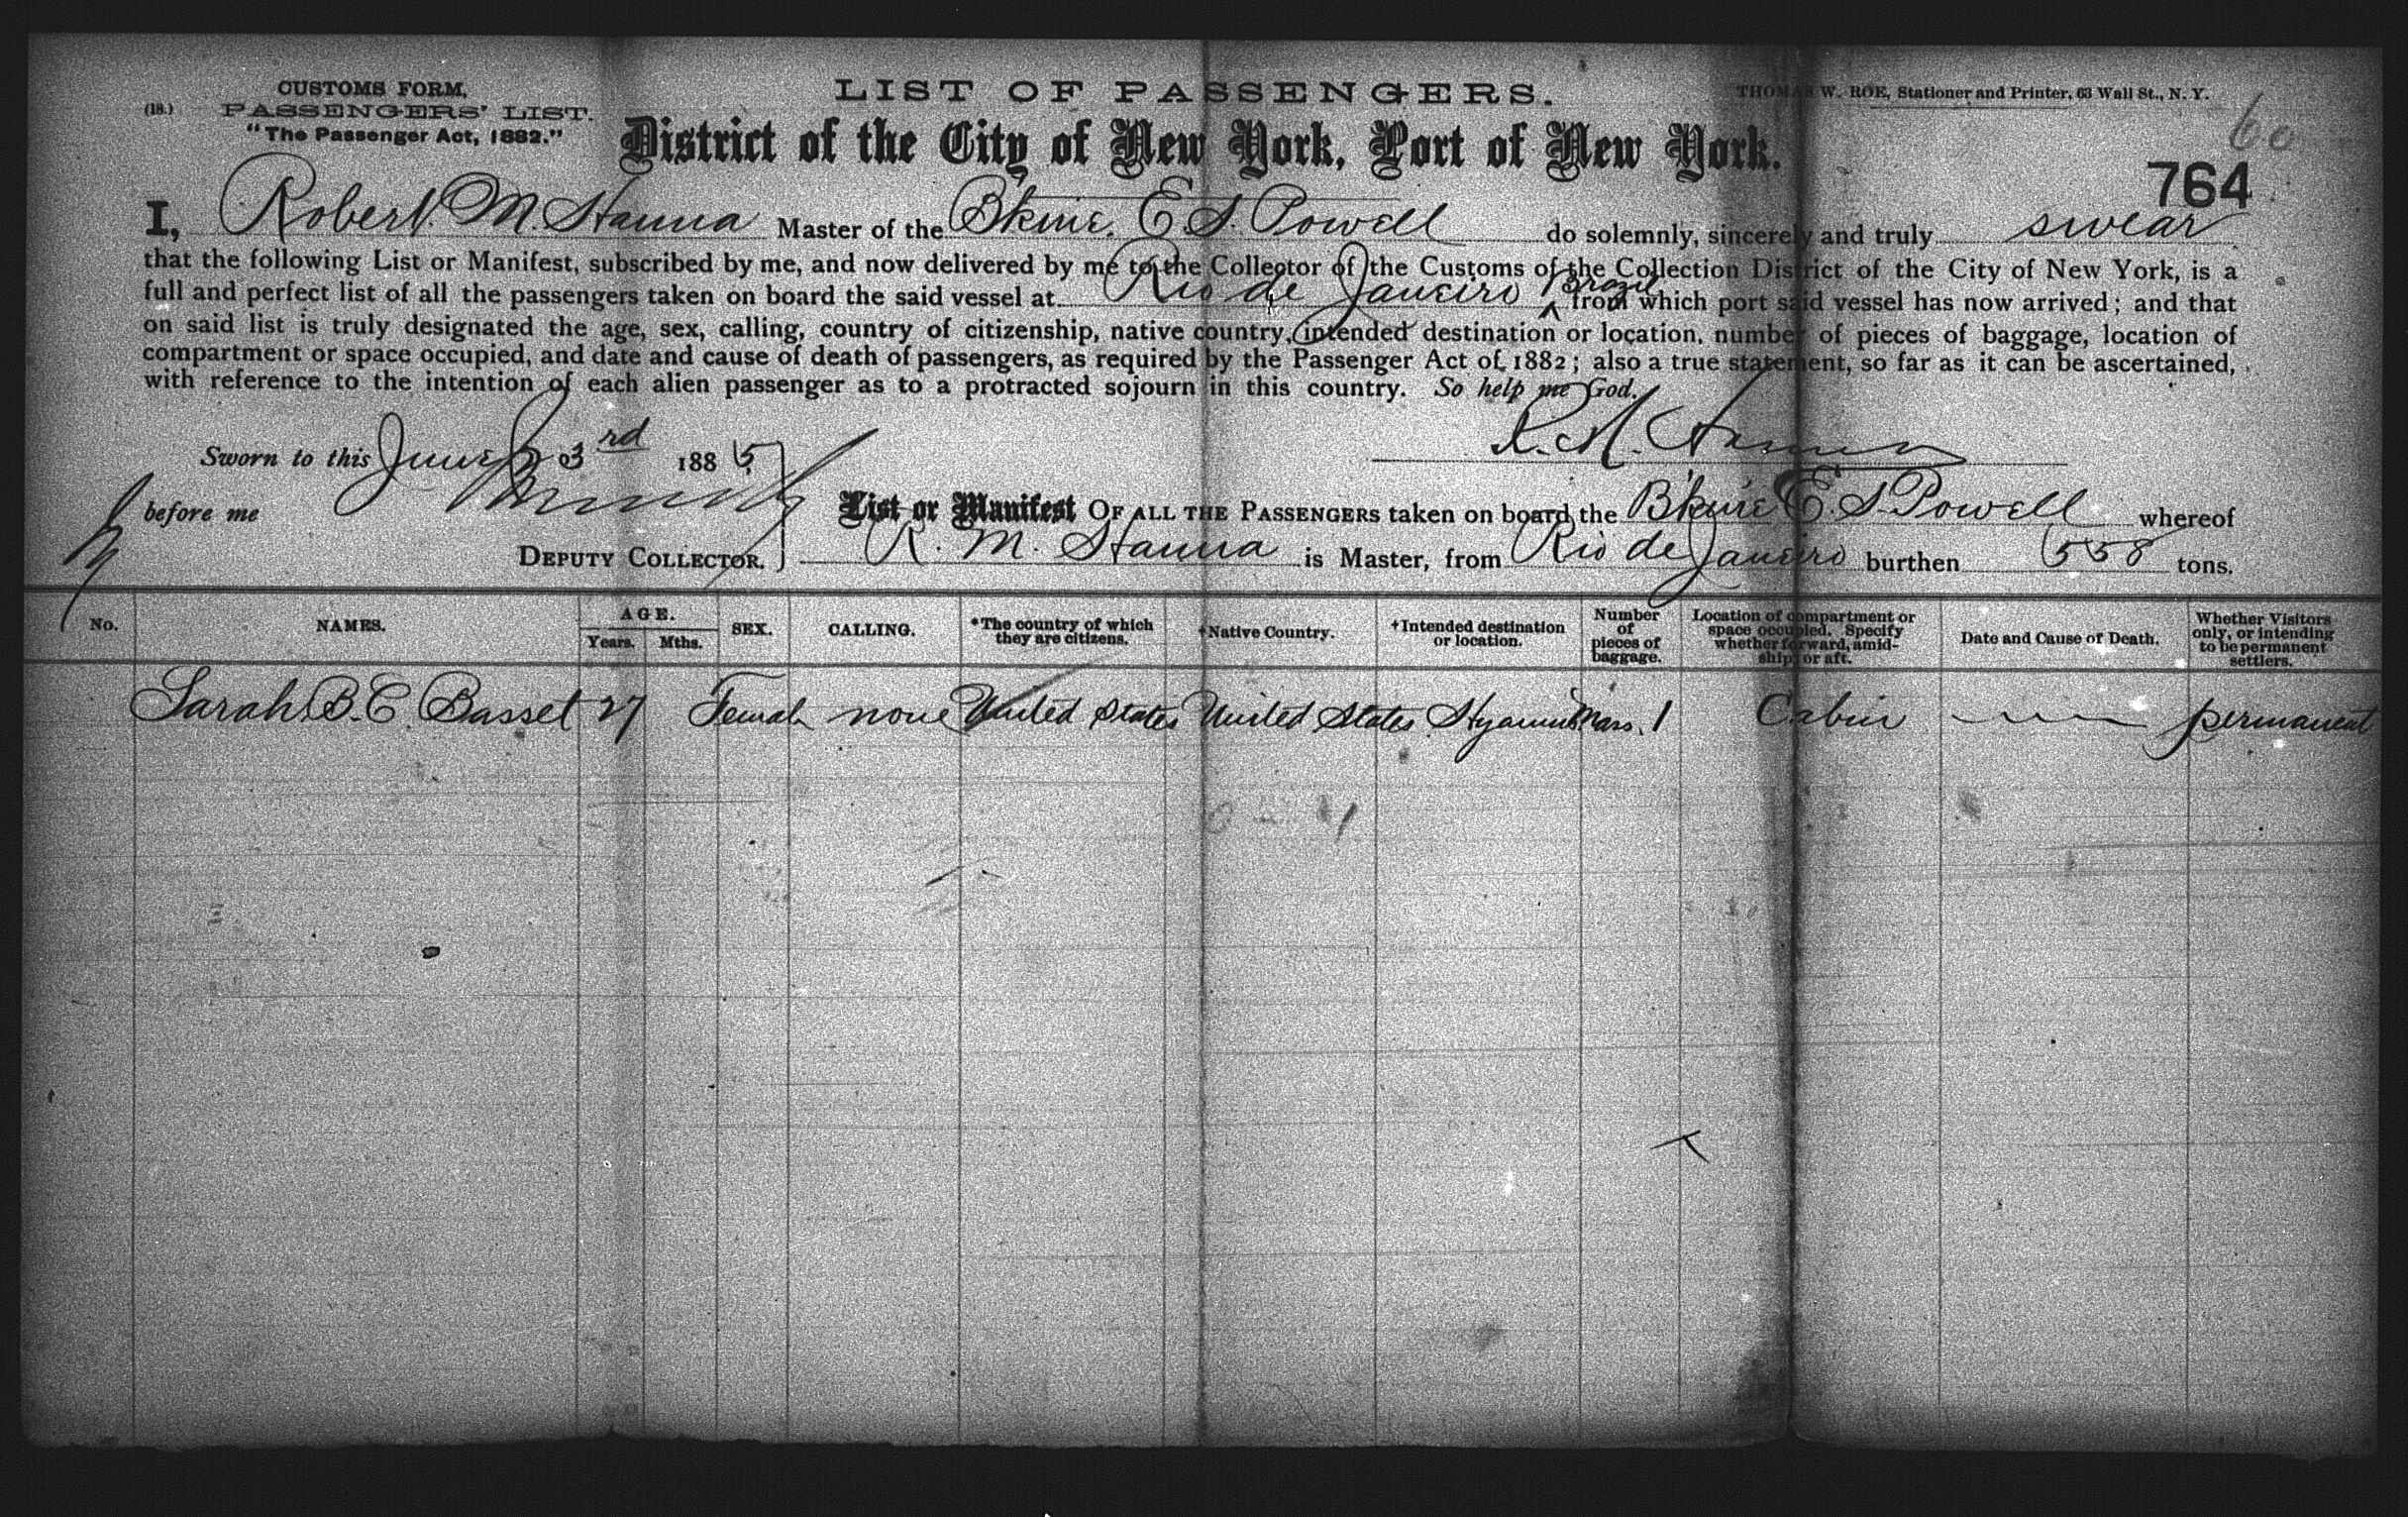 CUSTOMS FORM.
(18.) PASSENGERS' LIST.
"The Passenger Act, 1882."
LIST OF PASSENGERS.
THOMAS W. ROE, Stationer and Printer, 63 Wall St., N. Y.
60
District of the City of New York, Port of New York.
764
I, Robert M. Hanna Master of the Bkine. E. S. Powell do solemnly, sincerely and truly swear
that the following List or Manifest, subscribed by me, and now delivered by me to the Collector of the Customs of the Collection District of the City of New York, is a
full and perfect list of all the passengers taken on board the said vessel at Rio de Janeiro Brazil from which port said vessel has now arrived; and that
on said list is truly designated the age, sex, calling, country of citizenship, native country, intended destination or location, number of pieces of baggage, location of
compartment or space occupied, and date and cause of death of passengers, as required by the Passenger Act of 1882; also a true statement, so far as it can be ascertained,
with reference to the intention of each alien passenger as to a protracted sojourn in this country. So help me God.
R. M. Hanna
Sworn to this June 3rd 1885
before me
DEPUTY COLLECTOR.
List or Manifest OF ALL THE PASSENGERS taken on board the B'kine E. S. Powell whereof
R. M. Hanna is Master, from Rio de Janeiro burthen 558 tons.
No. NAMES. AGE. Years. Mths. SEX. CALLING. *The country of which they are citizens. †Native Country. †Intended destination or location. Number of pieces of baggage. Location of compartment or space occupied. Specify whether forward, amidship, or aft. Date and Cause of Death. Whether Visitors only, or intending to be permanent settlers.
Sarah B. C. Basset 27 Female none United States United States Hyannis Mass. 1 Cabin permanent